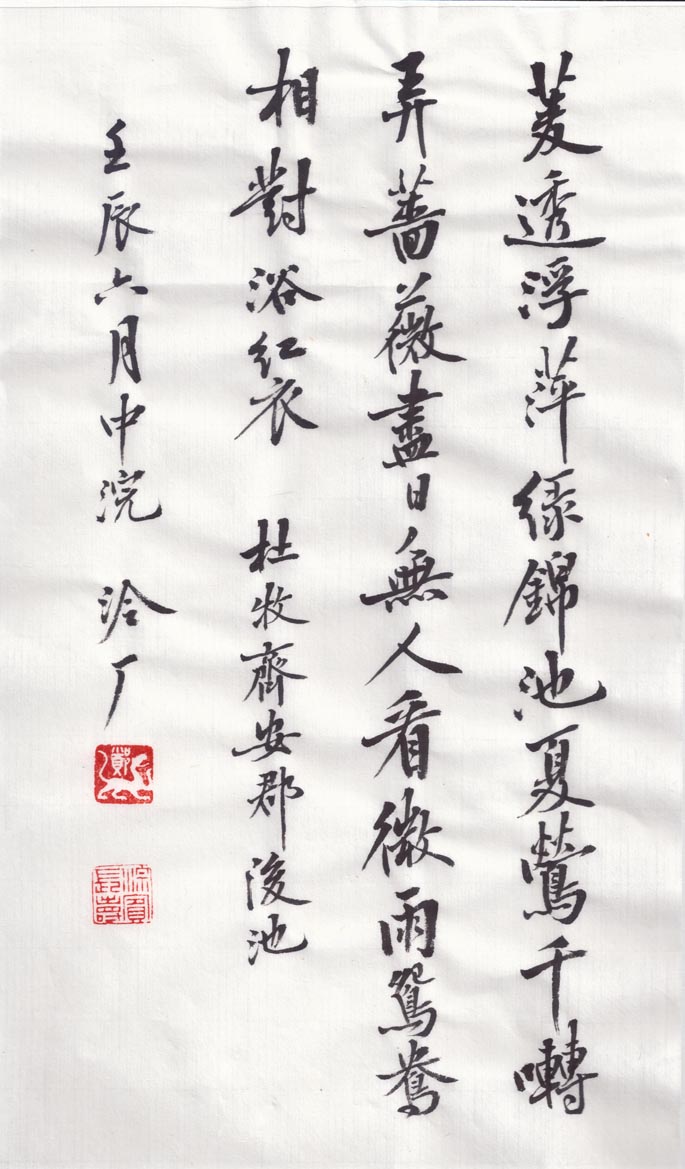 菱透浮萍緑錦池夏鶯千囀
弄薔薇盡日無人看微雨鴛鴦
相對浴紅衣 杜牧齊安郡後池
壬辰六月中浣 泠厂